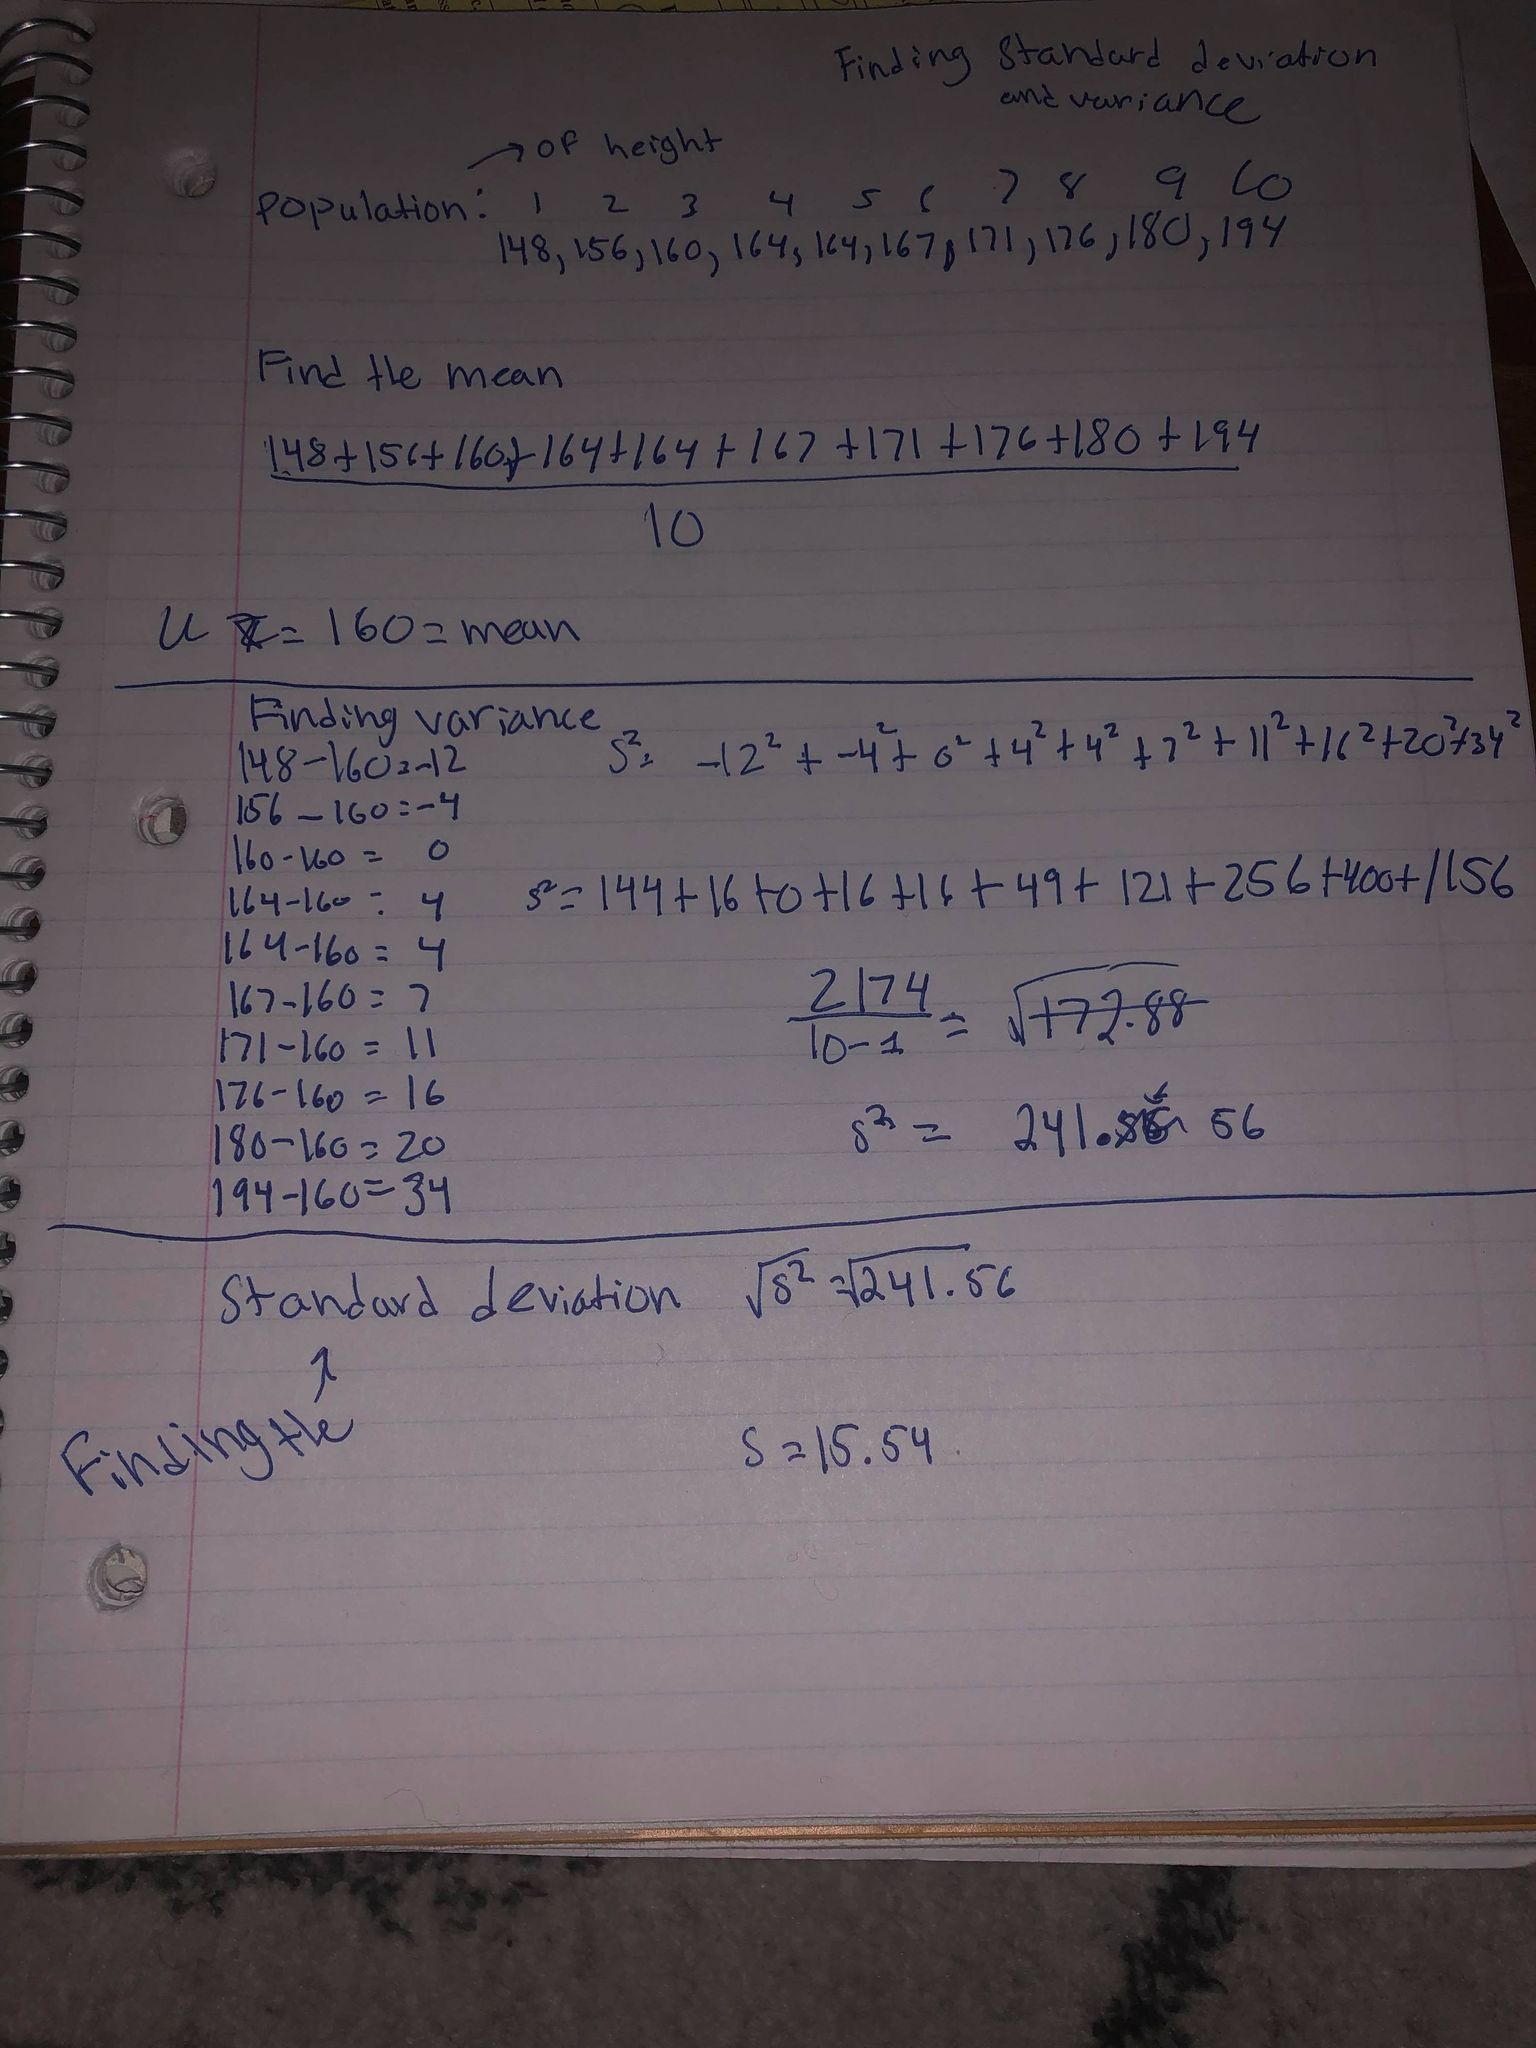 Finding Standard deviation
and variance
→ of height
Population: 1 2 3 4 5 6 7 8 9 10
148, 156, 160, 164, 164, 167, 171, 176, 180, 194
Find the mean
148+156+160+164+164+167+171+176+180+194
10
u = 160 = mean
Finding variance
148-160=-12
156-160=-4
160-160= 0
164-160= 4
164-160= 4
167-160= 7
171-160= 11
176-160= 16
180-160= 20
194-160= 34
S²= -12² + -4² + 0² + 4² + 4² + 7² + 11² + 16² + 20² + 34²
s²= 144+16+0+16+16+49+121+256+400+1156
2174
10-1 = √172.88
s² = 241.56
Standard deviation √s² = √241.56
↑
Finding the
S = 15.54